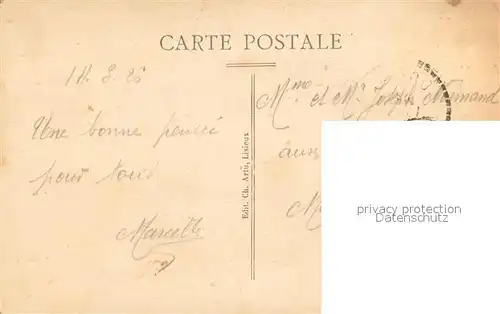 CARTE POSTALE
Une bonne pensée
pour tous
Marcelle
Edit. Ch. Artù, Lisieux
Mme et Mr Joseph
aux
privacy protection
Datenschutz